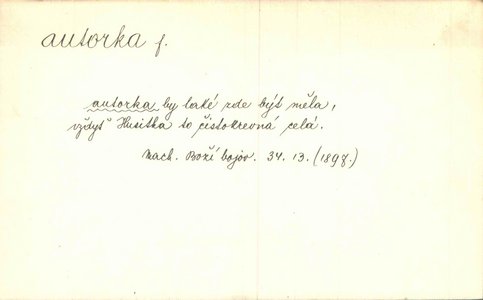 autorka f.
autorka by také zde být měla,
vždyť Husitka to čistokrevná celá.
Mach. Boží bojov. 34. 13. (1897.)